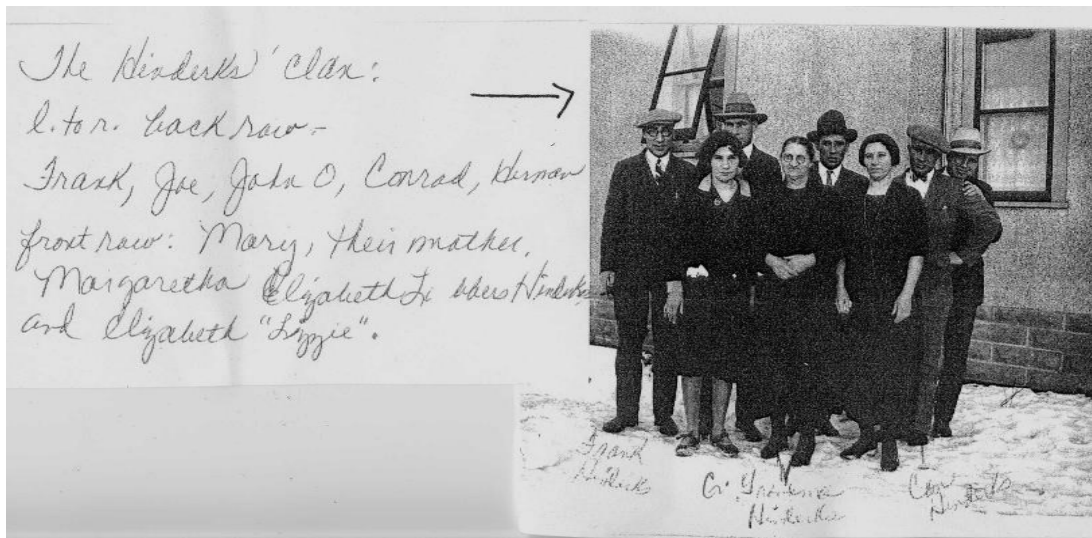 The Hinderks' Clan:
l. to r. back row -
Frank, Joe, John O, Conrad, Herman
front row: Mary, their mother,
Margaretha Elizabeth Hinderks
and Elizabeth "Lizzie".
Frank
Gr. Grandma
Hinderks